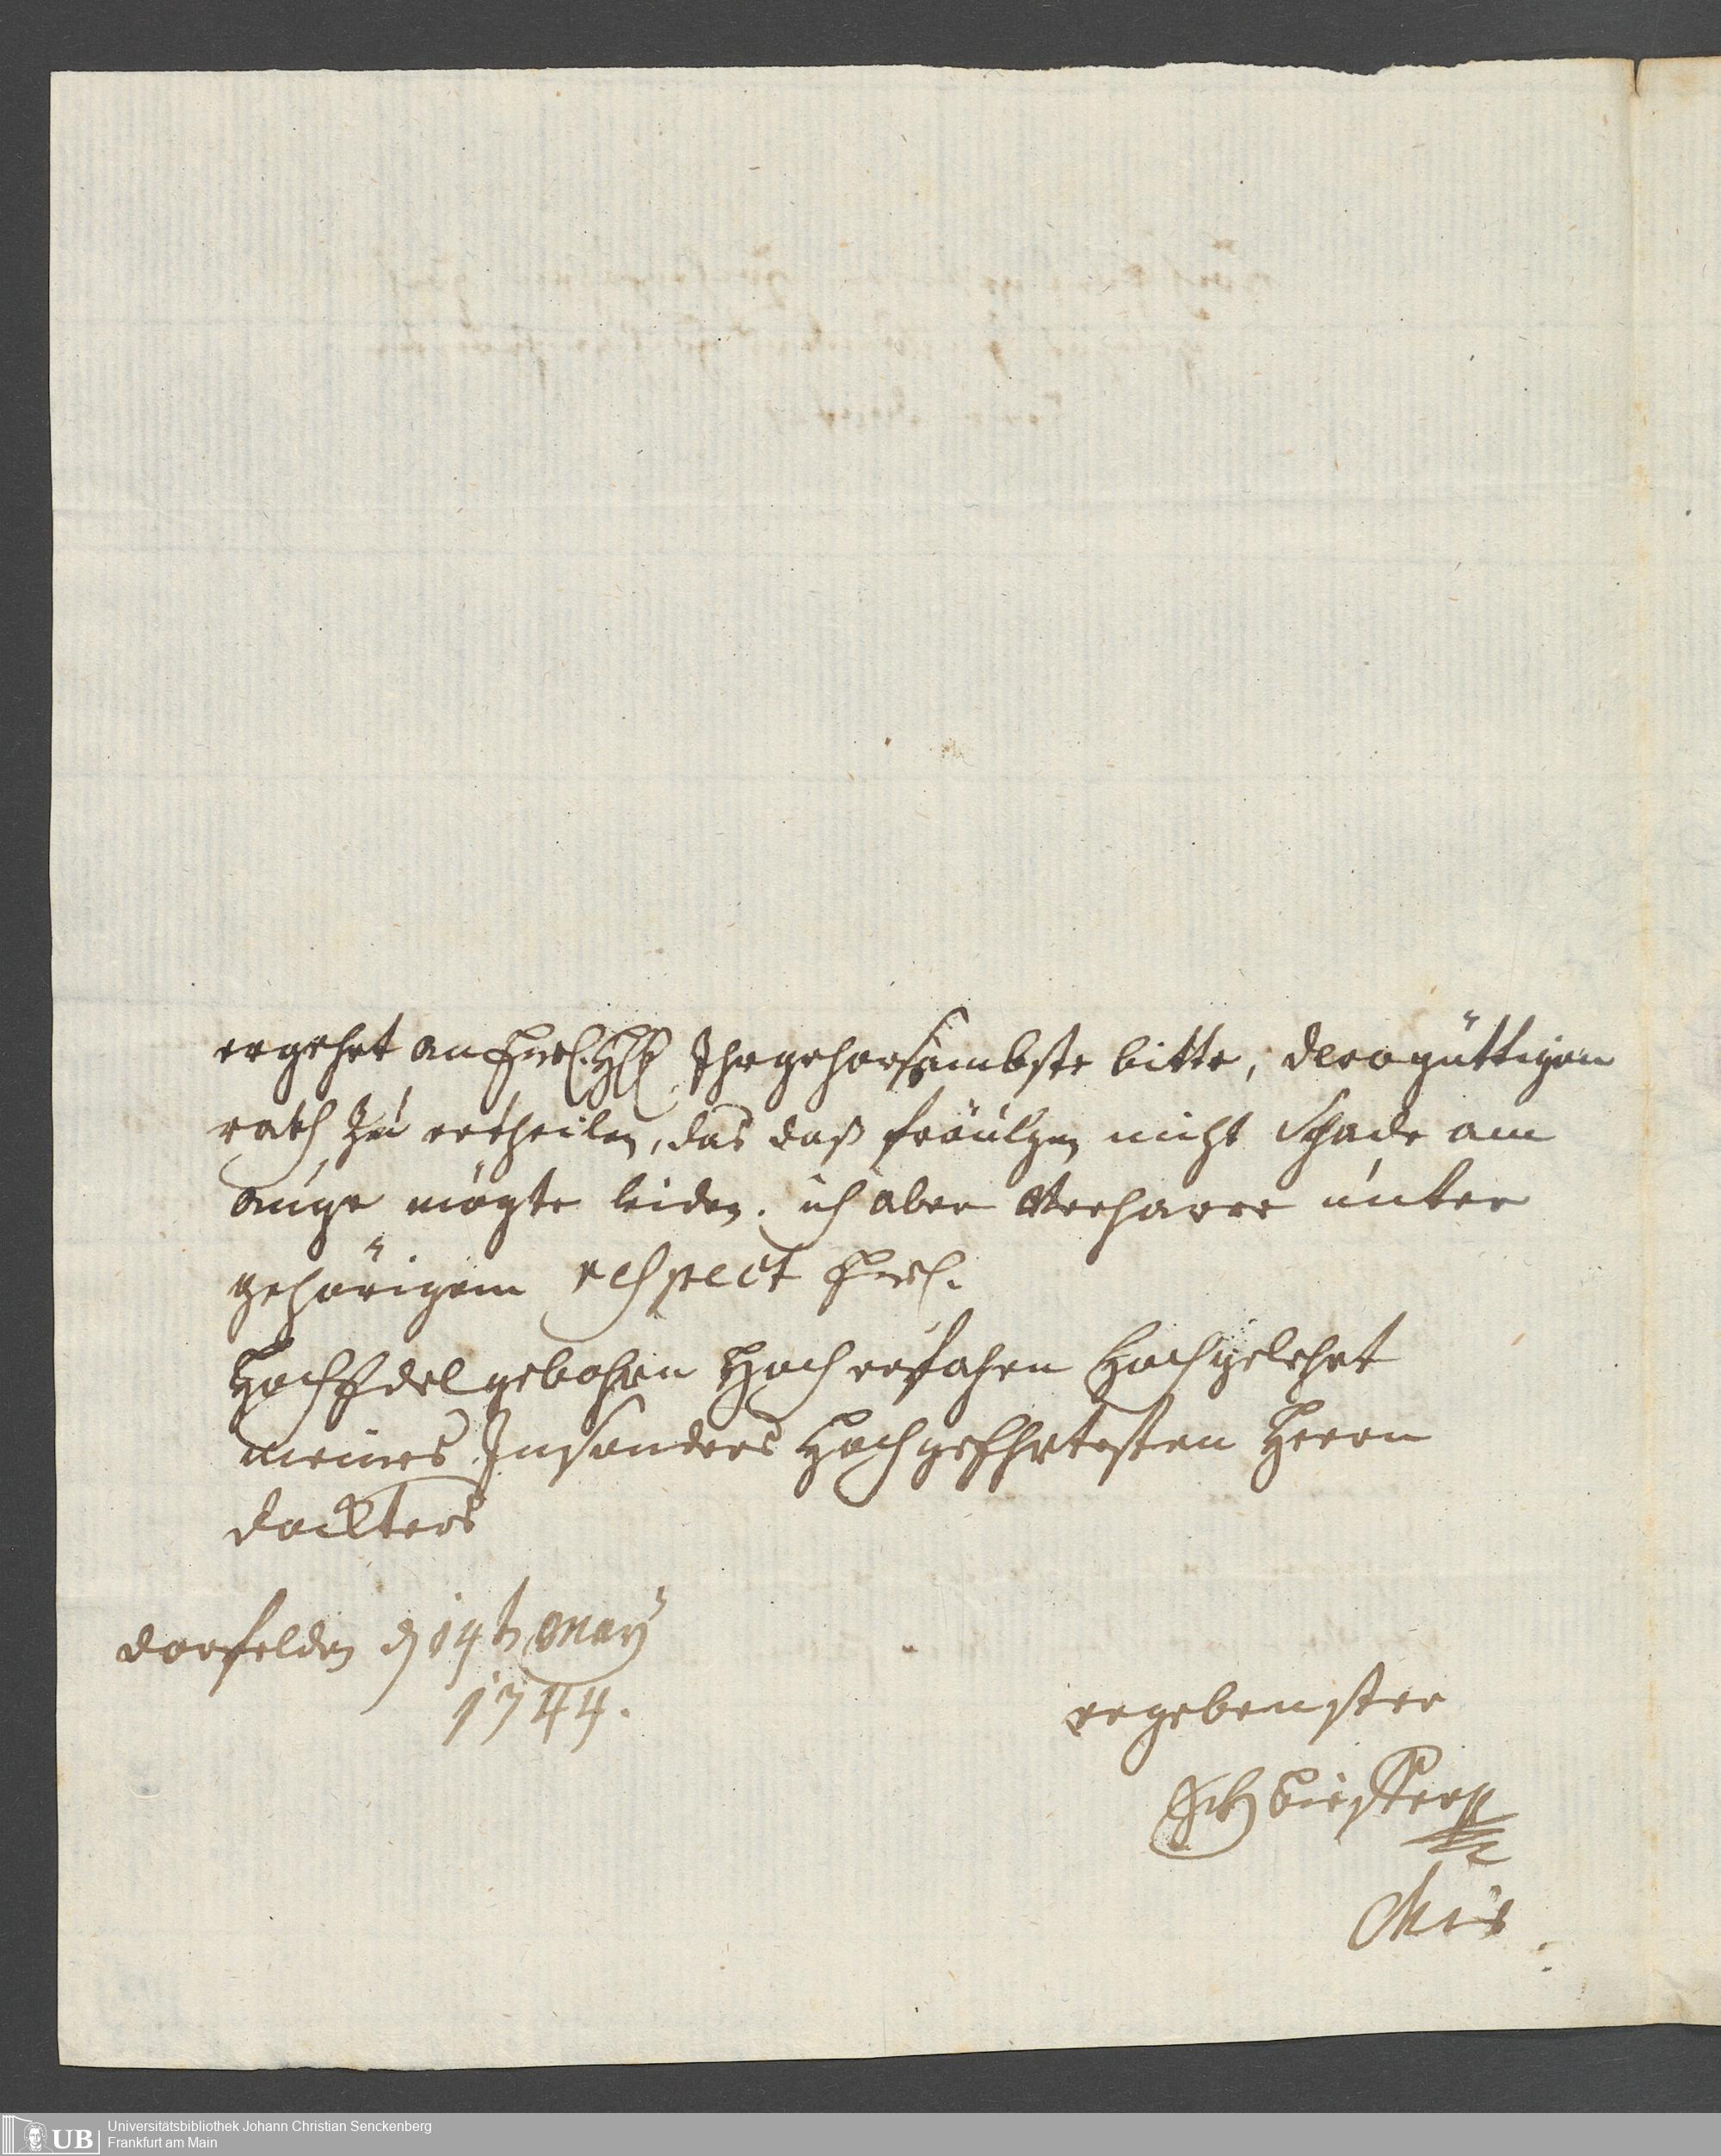 ergehet an Ihrgehorsambste bitte, derogüttigen
rath zu ertheilen, das daß fräülgen nicht Schade am
auge mögte leiden. ich aber Verharre unter
gehörigem respect Ewl.
HochEdelgebohren Hocherfahren Hochgelehrt
meines Insonders HochgeEhrtesten Herrn
dockters
dorfelden d 19t May
1744.
ergebenster
UB Universitätsbibliothek Johann Christian Senckenberg
Frankfurt am Main